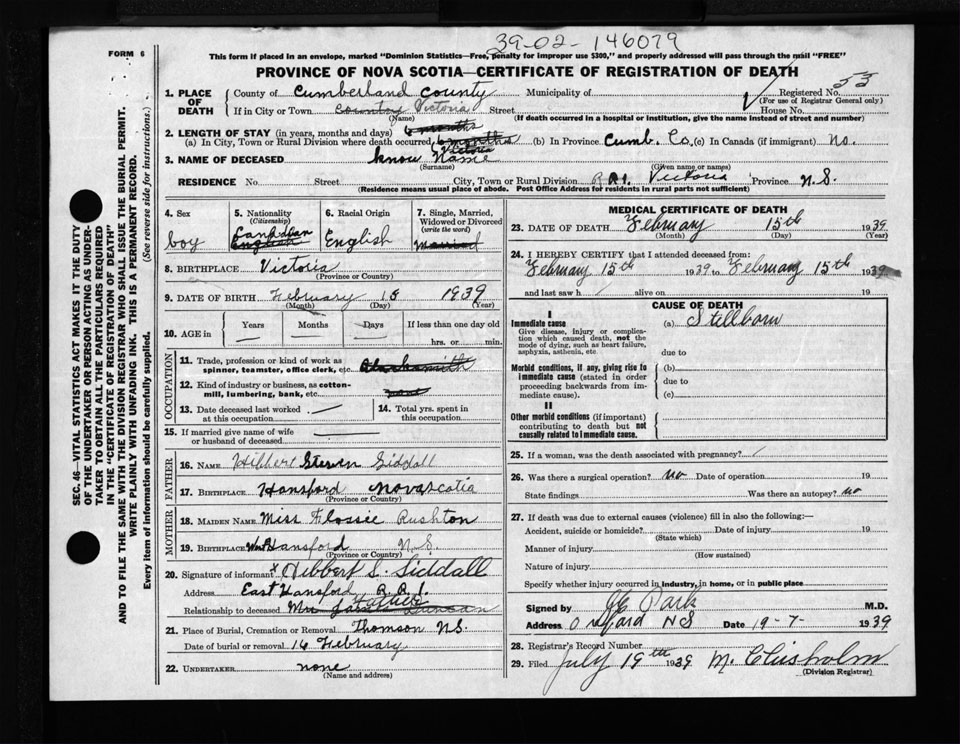 39-02-146079
FORM 6
This form if placed in an envelope, marked "Dominion Statistics—Free, penalty for improper use $300," and properly addressed will pass through the mail "FREE"
PROVINCE OF NOVA SCOTIA—CERTIFICATE OF REGISTRATION OF DEATH
SEC. 46—VITAL STATISTICS ACT MAKES IT THE DUTY
OF THE UNDERTAKER OR PERSON ACTING AS UNDER-
TAKER TO OBTAIN ALL THE PARTICULARS REQUIRED
IN THE "CERTIFICATE OF REGISTRATION OF DEATH"
AND TO FILE THE SAME WITH THE DIVISION REGISTRAR WHO SHALL ISSUE THE BURIAL PERMIT.
WRITE PLAINLY WITH UNFADING INK. THIS IS A PERMANENT RECORD.
Every item of information should be carefully supplied. (See reverse side for instructions.)
1. PLACE OF DEATH County of Cumberland County Municipality of Registered No. 53
(For use of Registrar General only)
If in City or Town Country Victoria Street House No.
(Name) (If death occurred in a hospital or institution, give the name instead of street and number)
2. LENGTH OF STAY (in years, months and days) 6 months
(a) In City, Town or Rural Division where death occurred 6 months (b) In Province Cumb. Co. (c) In Canada (if immigrant) No.
Victoria
3. NAME OF DECEASED know Name
(Surname) (Given name or names)
RESIDENCE No. Street City, Town or Rural Division R R1. Victoria Province N.S.
(Residence means usual place of abode. Post Office Address for residents in rural parts not sufficient)
4. Sex boy
5. Nationality (Citizenship) Canadian English
6. Racial Origin English
7. Single, Married, Widowed or Divorced (write the word) Married
8. BIRTHPLACE Victoria
(Province or Country)
9. DATE OF BIRTH February 15 1939
(Month) (Day) (Year)
10. AGE in Years Months Days If less than one day old
hrs. or min.
OCCUPATION
11. Trade, profession or kind of work as spinner, teamster, office clerk, etc. Blacksmith
12. Kind of industry or business, as cotton-mill, lumbering, bank, etc.
13. Date deceased last worked at this occupation
14. Total yrs. spent in this occupation
15. If married give name of wife or husband of deceased
FATHER
16. NAME Hibbert Steven Siddall
17. BIRTHPLACE Hansford Nova scotia
(Province or Country)
MOTHER
18. MAIDEN NAME Miss Flossie Rushton
19. BIRTHPLACE West Hansford N.S.
(Province or Country)
20. Signature of informant x Hibbert S. Siddall
Address East Hansford R.R.1.
Father
Relationship to deceased Mrs
21. Place of Burial, Cremation or Removal Thomson N.S.
Date of burial or removal 16 February
22. UNDERTAKER none
(Name and address)
MEDICAL CERTIFICATE OF DEATH
23. DATE OF DEATH February 15th 1939
(Month) (Day) (Year)
24. I HEREBY CERTIFY that I attended deceased from:
February 15th 1939 to February 15th 1939
and last saw h alive on 19
CAUSE OF DEATH
I
Immediate cause (a) Stillborn
Give disease, injury or complication which caused death, not the mode of dying, such as heart failure, asphyxia, asthenia, etc
due to
Morbid conditions, if any, giving rise to immediate cause (stated in order proceeding backwards from immediate cause). (b)
due to
(c)
II
Other morbid conditions (if important) contributing to death but not causally related to immediate cause.
25. If a woman, was the death associated with pregnancy?
26. Was there a surgical operation? no Date of operation 19
State findings Was there an autopsy? no
27. If death was due to external causes (violence) fill in also the following:—
Accident, suicide or homicide? Date of injury 19
(State which)
Manner of injury
(How sustained)
Nature of injury
Specify whether injury occurred in industry, in home, or in public place
Signed by Park M.D.
Address Oxford NS Date 19-7- 1939
28. Registrar's Record Number
29. Filed July 19th 1939 M. Chisholm
(Division Registrar)